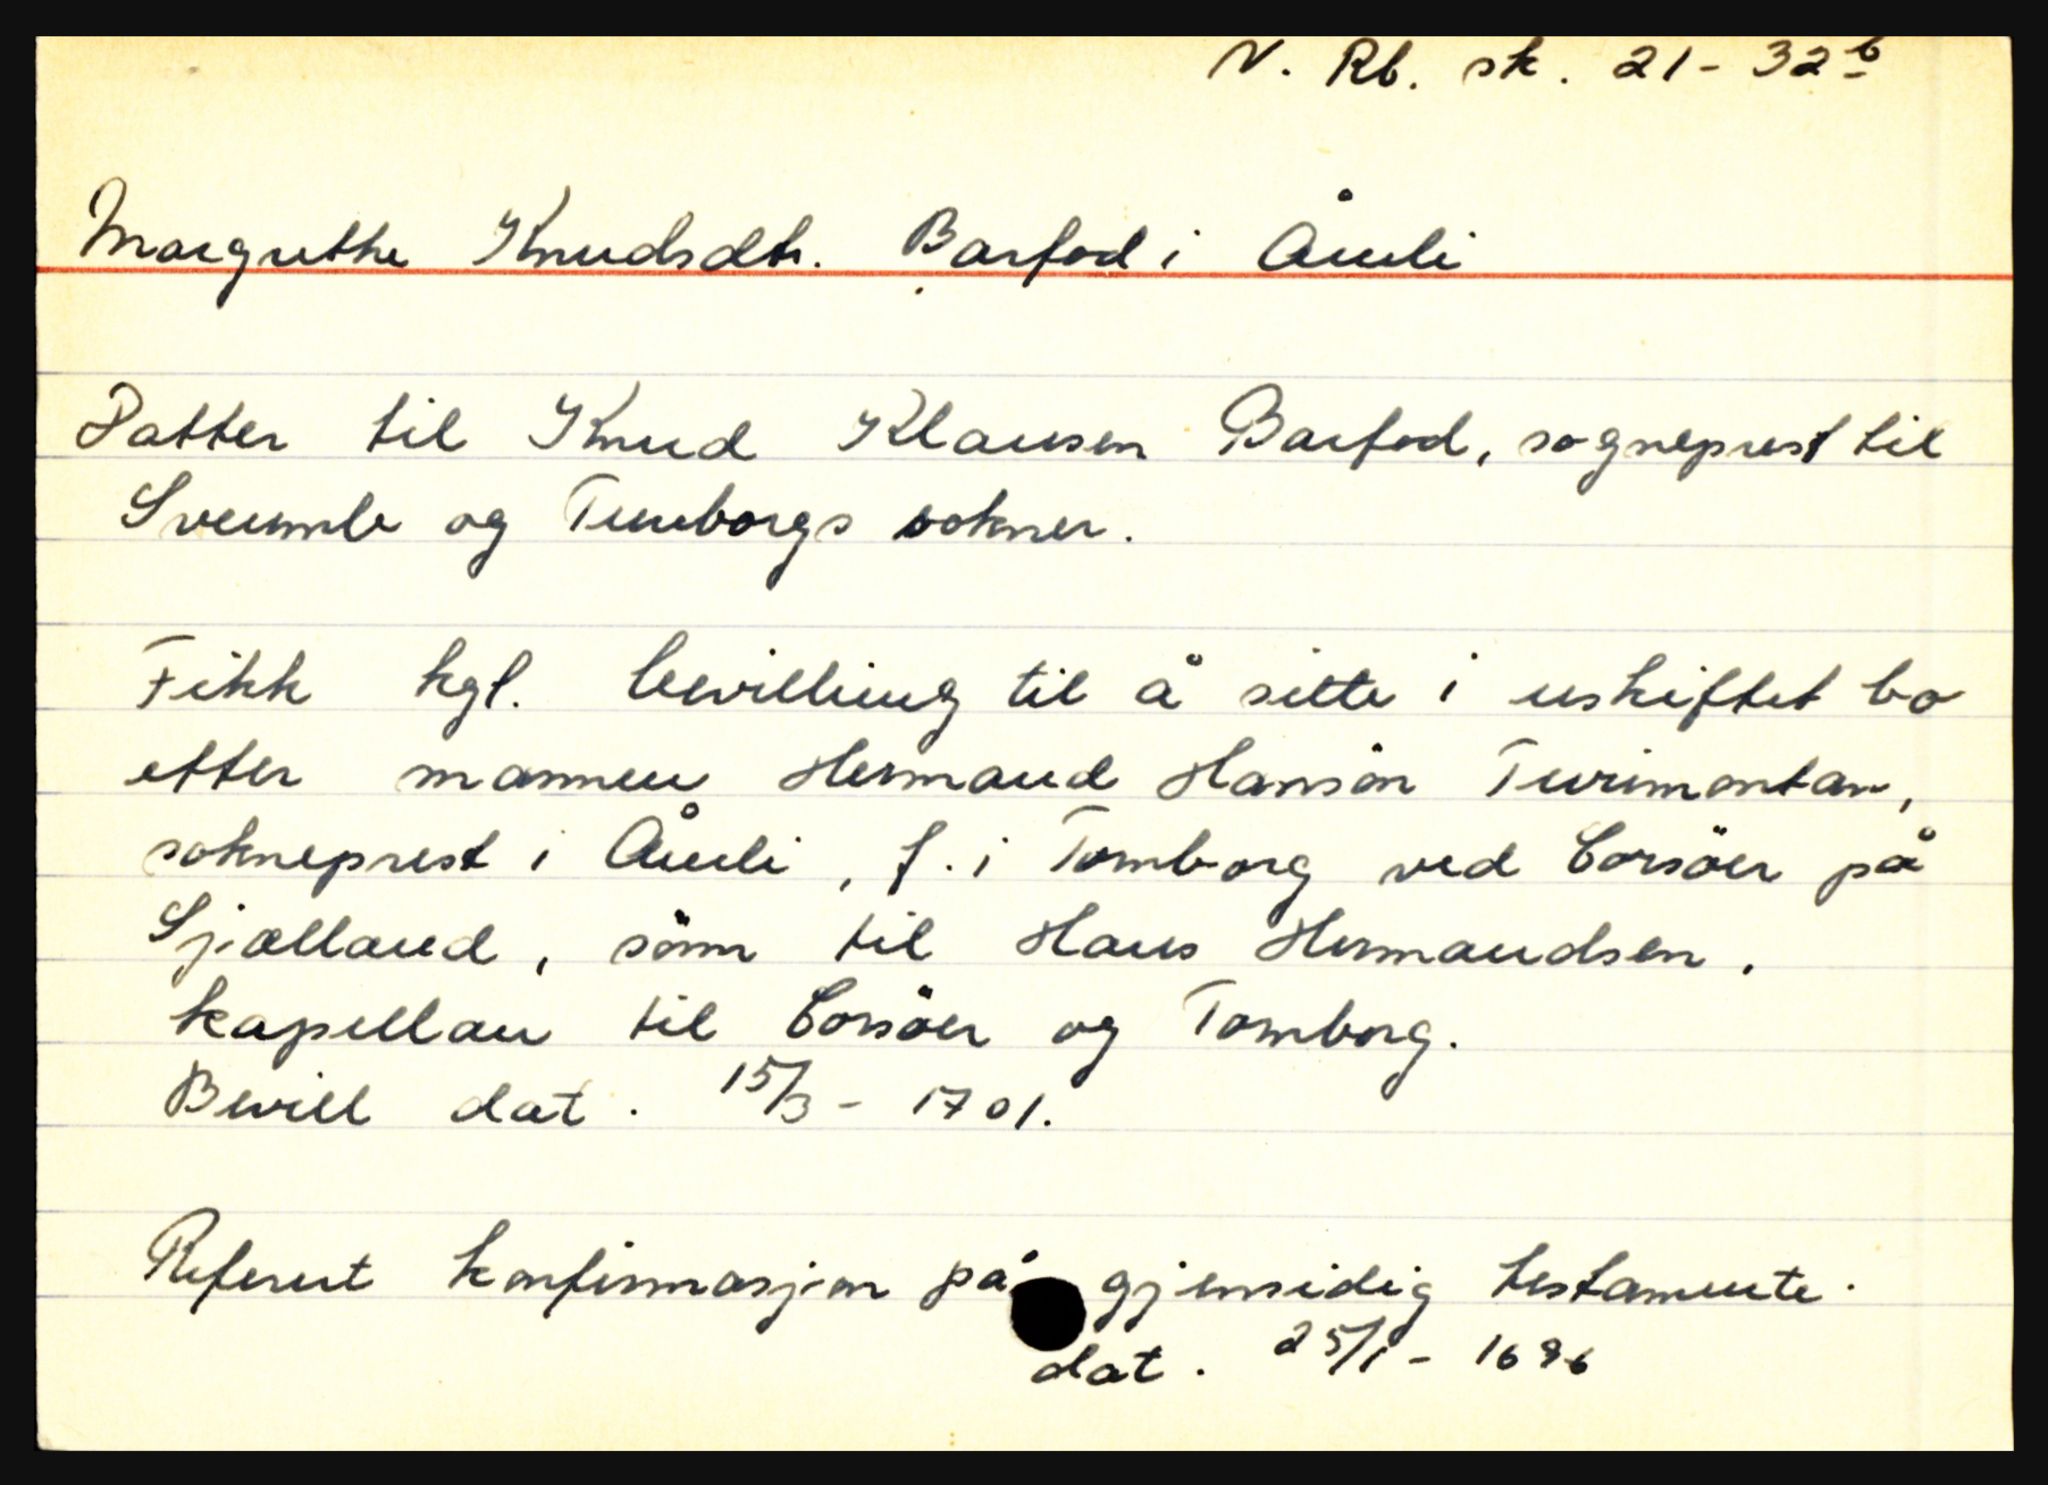 N. Rb. sk. 21 - 32 b
Margrethe Knudsdtr. Barfod i Åmli
Datter til Knud Klausen Barfod, sogneprest til
og Tureborgs sokner.
Fikk kgl. bevilling til å sitte i uskiftet bo
etter mannen Hermand Hansön Turimontan,
sokneprest i Åmli, f. i Tomborg ved Corsöer på
Sjælland, sönn til Hans Hermandsen,
kapellan til Corsöer og Tomborg.
Bevill dat. 15/3 - 1701.
Referert konfirmasjon på gjensidig testamente.
dat. 25/1 - 1696